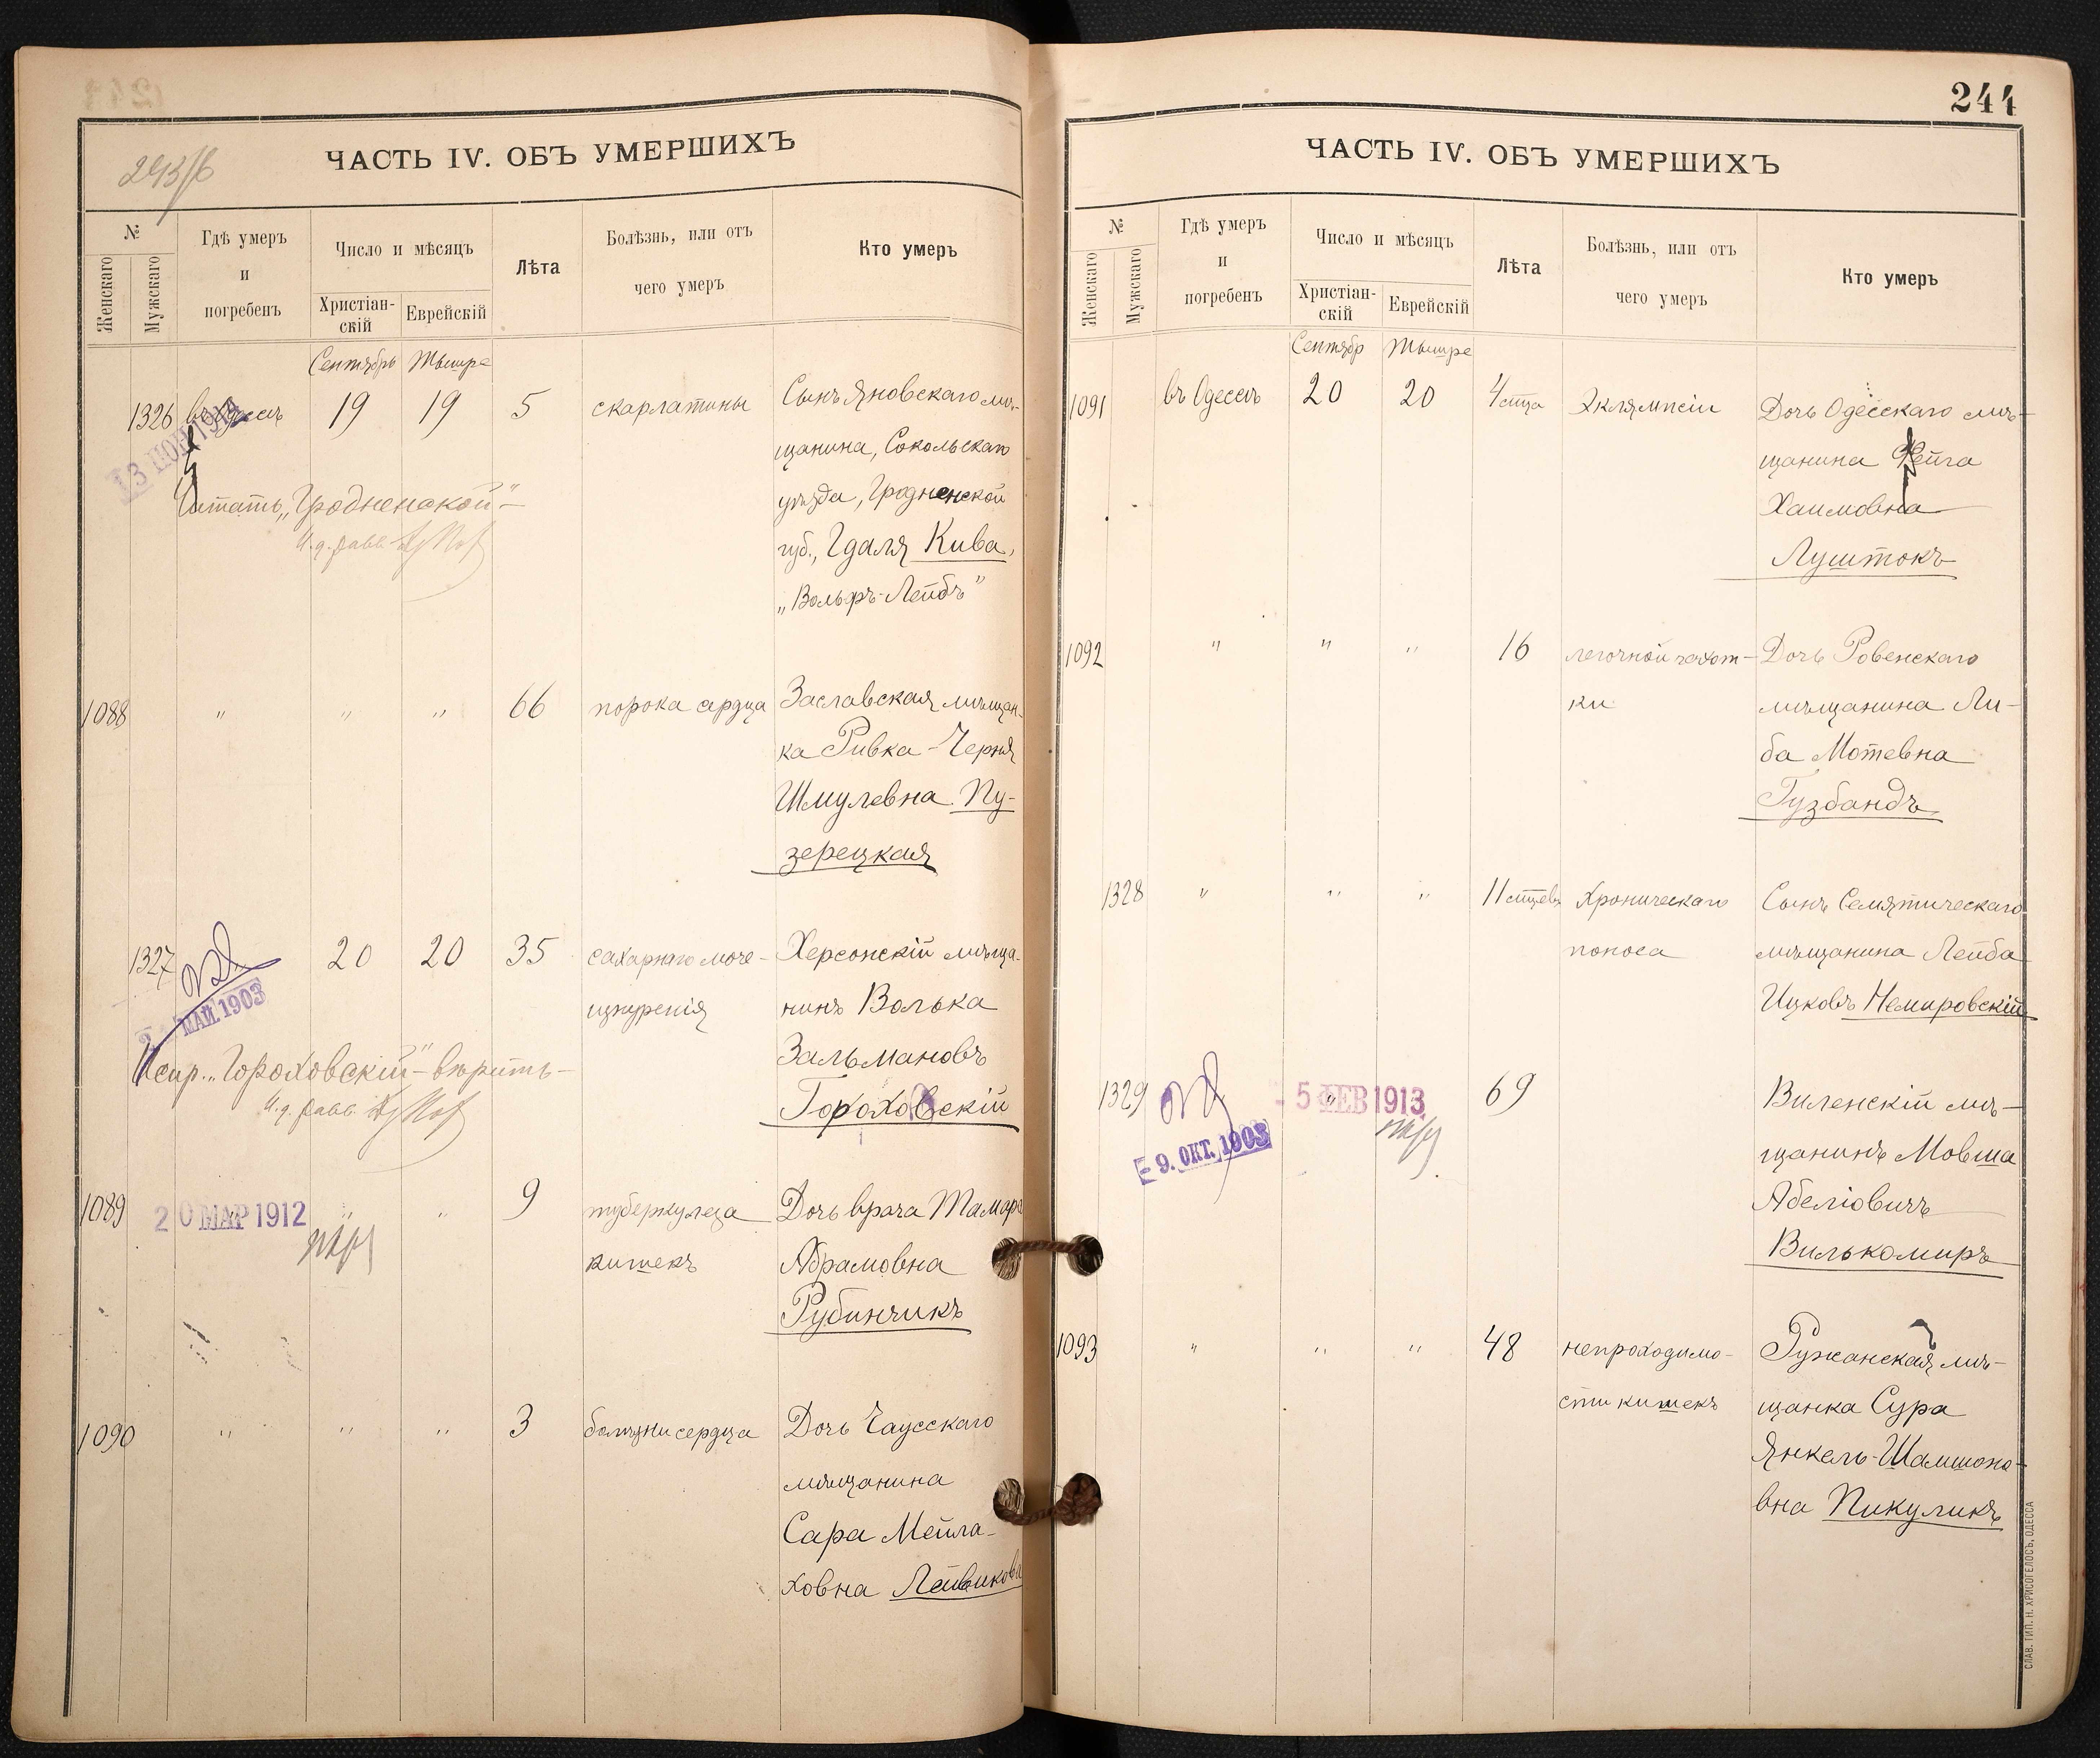 243/б
ЧАСТЬ IV. ОБЪ УМЕРШИХЪ
№
Женскаго
Мужскаго
Гдѣ умеръ
и
погребенъ
Число и мѣсяцъ
Христіан-
скій
Еврейскій
Лѣта
Болѣзнь, или отъ
чего умеръ
Кто умеръ
Сентябрь Тышре
1326 въ Одессѣ 19 19 5 скарлатины Сынъ Яновскаго мѣ-
щанина, Сокольскаго
уѣзда, Гродненской
губ., Гдаля Кива,
„Вольфъ-Лейбъ"
13 1914
Читать „Гродненской"
И.д. равв.
1088 " " " 66 порока сердца Заславская мѣщан-
ка Ривка-Черня
Шмулевна Пу-
зерецкая
1327 20 20 35 сахарнаго моче-
изнуренія
Херсонскій мѣща-
нинъ Волька
Зальмановъ
Гороховскій
МАЙ 1903
Испр. „Гороховскій" - вѣрить -
И.д. равв.
1089 " " 9 туберкулеза
кишекъ
Дочь врача Тамара
Абрамовна
Рубинчикъ
20 МАР 1912
1090 " " " 3 болѣзни сердца Дочь Чаусскаго
мѣщанина
Сара Мейла-
ховна Лейвикова
244
ЧАСТЬ IV. ОБЪ УМЕРШИХЪ
№
Женскаго
Мужскаго
Гдѣ умеръ
и
погребенъ
Число и мѣсяцъ
Христіан-
скій
Еврейскій
Лѣта
Болѣзнь, или отъ
чего умеръ
Кто умеръ
Сентябр Тышре
1091 въ Одессѣ 20 20 4 мѣсца Эклямпсіи Дочь Одесскаго мѣ-
щанина Фейга
Хаимовна
Луштокъ
1092 " " " 16 легочной чахот-
ки
Дочь Ровенскаго
мѣщанина Ли-
ба Мотевна
Гузбандъ
1328 " " " 11 мѣсцевъ Хроническаго
поноса
Сынъ Семятическаго
мѣщанина Лейба
Ицковъ Немировскій
1329 " 69 Виленскій мѣ-
щанинъ Мовша
Абеліовичъ
Вилькомиръ
- 5 ФЕВ 1913
- 9. ОКТ. 1903
1093 " " " 48 непроходимо-
сти кишекъ
Ружанская мѣ-
щанка Сура
Янкель-Шамшоно-
вна Пикуликъ
СЛАВ. ТИП. Н. ХРИСОГЕЛОСЪ, ОДЕССА